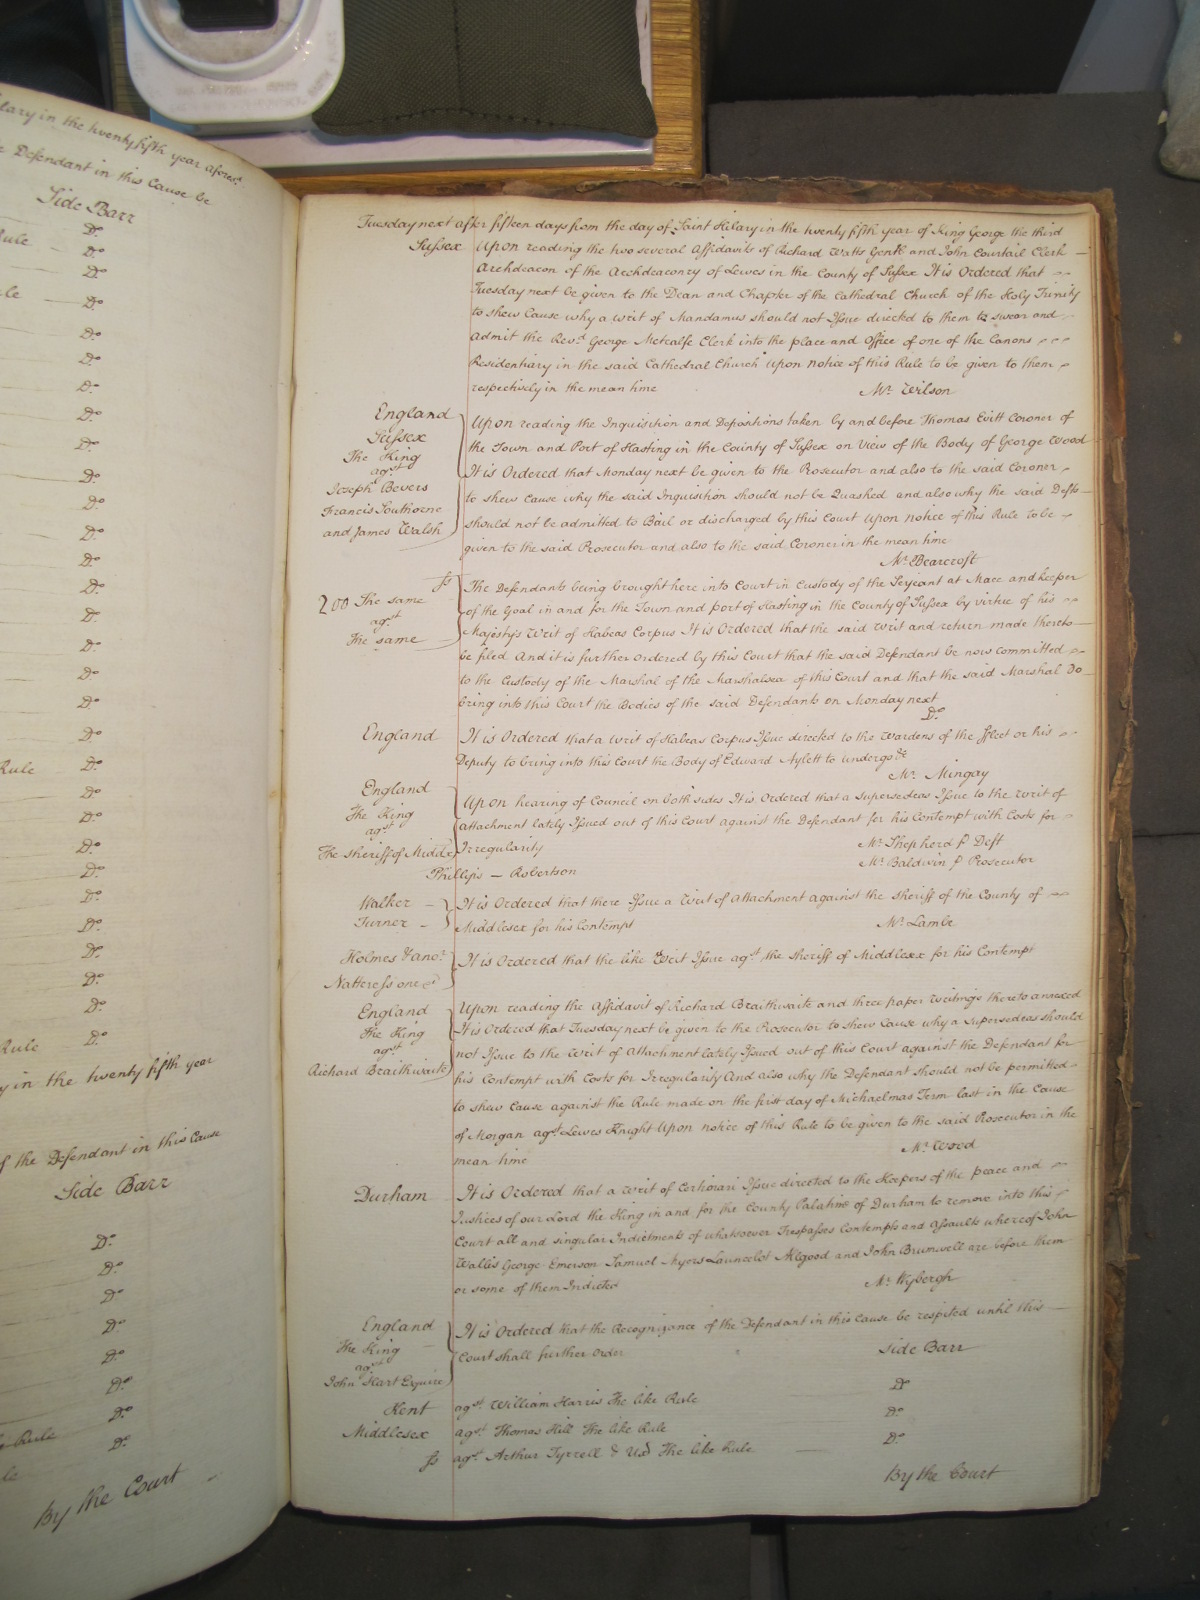 Hilary in the twenty fifth year afores.d
Defendant in this Cause be
Side Barr
D.o
Rule D.o
D.o
D.o
D.o
D.o
D.o
D.o
D.o
D.o
D.o
D.o
D.o
D.o
D.o
D.o
D.o
D.o
D.o
Rule D.o
D.o
D.o
D.o
D.o
D.o
D.o
D.o
D.o
D.o
Rule D.o
in the twenty fifth year
of the Defendant in this Cause
Side Barr
D.o
D.o
D.o
D.o
D.o
D.o
D.o
Rule D.o
By the Court
Tuesday next after fifteen days from the day of Saint Hilary in the twenty fifth year of King George the third
Sussex Upon reading the two several Affidavits of Richard Watts Gent. and John Courtail Clerk
Archdeacon of the Archdeaconry of Lewes in the County of Sussex It is Ordered that
Tuesday next be given to the Dean and Chapter of the Cathedral Church of the Holy Trinity
to shew Cause why a Writ of Mandamus should not Issue directed to them to swear and
admit the Rev.d George Metcalfe Clerk into the place and Office of one of the Canons
Residentiary in the said Cathedral Church Upon notice of this Rule to be given to them
respectively in the mean time Mr. Wilson
England
Sussex
The King
ag.st
Joseph Bevers
Francis Southorne
and James Walsh
Upon reading the Inquisition and Depositions taken by and before Thomas Evitt Coroner of
the Town and Port of Hasting in the County of Sussex on View of the Body of George Wood
It is Ordered that Monday next be given to the Prosecutor and also to the said Coroner
to shew Cause why the said Inquisition should not be Quashed and also why the said Defts
should not be admitted to Bail or discharged by this Court Upon notice of this Rule to be
given to the said Prosecutor and also to the said Coroner in the mean time
Mr. Bearcroft
fs
200 The same
ag.st
The same
The Defendants being brought here into Court in Custody of the Serjeant at Mace and keeper
of the Goal in and for the Town and port of Hasting in the County of Sussex by virtue of his
Majesty's Writ of Habeas Corpus It is Ordered that the said Writ and return made thereto
be filed And it is further Ordered by this Court that the said Defendants be now committed
to the Custody of the Marshal of the Marshalsea of this Court and that the said Marshal Do
bring into this Court the Bodies of the said Defendants on Monday next
D.o
England It is Ordered that a Writ of Habeas Corpus Issue directed to the Wardens of the Fleet or his
Deputy to bring into this Court the Body of Edward Aylett to undergo &c
Mr. Mingay
England
The King
ag.st
The Sheriff of Middx
Upon hearing of Council on both sides It is Ordered that a Supersedeas Issue to the Writ of
attachment lately Issued out of this Court against the Defendant for his Contempt with Costs for
Irregularity Mr. Shepherd p Deft
Mr. Baldwin p Prosecutor
Phillips — Robertson
Walker
Turner
It is Ordered that there Issue a Writ of Attachment against the Sheriff of the County of
Middlesex for his Contempt Mr. Lambe
Holmes & ano.r
Nattress one &c
It is Ordered that the like Writ Issue ag.st the Sheriff of Middlesex for his Contempt
England
The King
ag.st
Richard Braithwaite
Upon reading the Affidavit of Richard Braithwaite and three paper Writings thereto annexed
It is Ordered that Tuesday next be given to the Prosecutor to shew Cause why a Supersedeas should
not Issue to the Writ of Attachment lately Issued out of this Court against the Defendant for
his Contempt with Costs for Irregularity And also why the Defendant should not be permitted
to shew Cause against the Rule made on the first day of Michaelmas Term last in the Cause
of Morgan ag.st Lewes Knight Upon notice of this Rule to be given to the said Prosecutor in the
mean time Mr. Wood
Durham It is Ordered that a Writ of Certiorari Issue directed to the Keepers of the peace and
Justices of our Lord the King in and for the County Palatine of Durham to remove into this
Court all and singular Indictments of whatsoever Trespasses Contempts and Assaults whereof John
Wallis George Emerson Samuel Myers Launcelot Allgood and John Brumwell are before them
or some of them Indicted Mr. Wybergh
England
The King
ag.st
John Hart Esquire
It is Ordered that the Recognizance of the Defendant in this Cause be respited until this
Court shall further Order Side Barr
Kent ag.st William Harris The like Rule D.o
Middlesex ag.st Thomas Hill The like Rule D.o
fs ag.st Arthur Tyrrell & Ux The like Rule D.o
By the Court